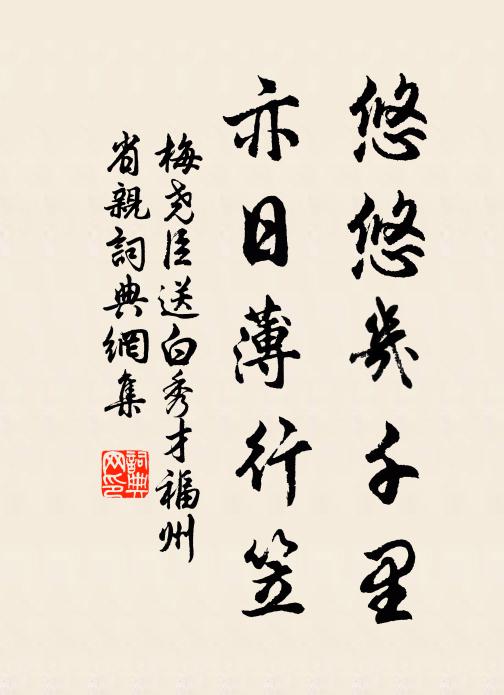 悠悠幾千里
亦日薄行笠
梅堯臣送白秀才福州
省親詞典網集
詞典
网印